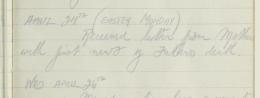 APRIL 24TH (EASTER MONDAY)
Received letter from Mother
with first news of Fathers death.
WED APRIL 26TH